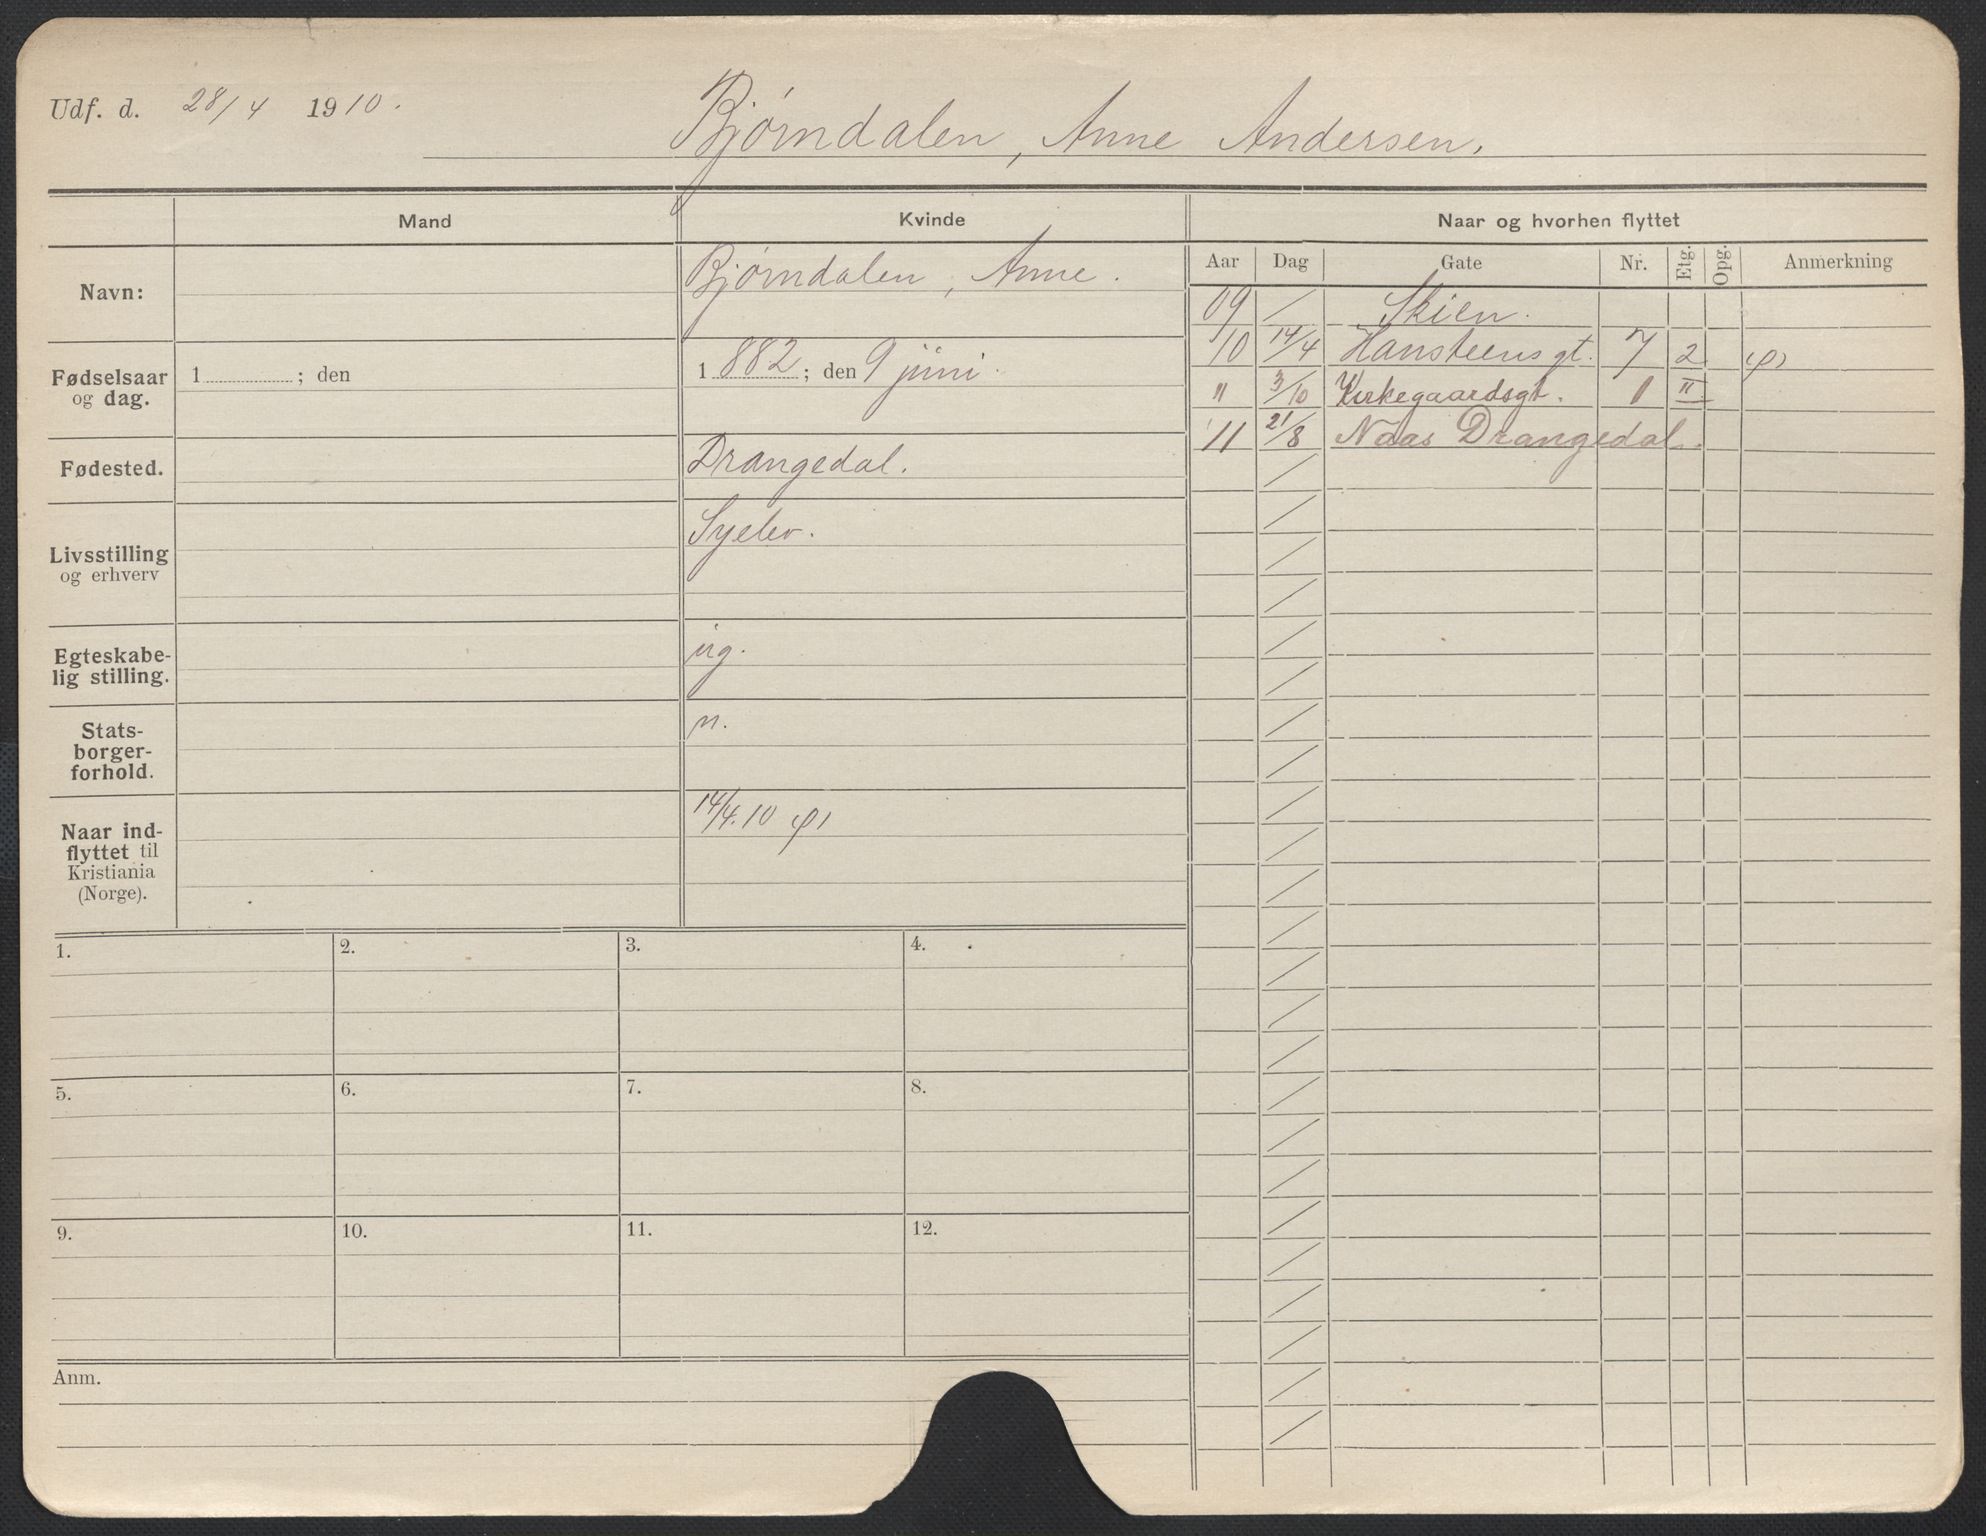 Udf. d. 28/4 1910.
Bjørndalen, Anne Andersen.
Mand
Kvinde
Naar og hvorhen flyttet
Aar Dag Gate Nr. Etg. Opg. Anmerkning
Navn:
Bjørndalen, Anne.
Fødselsaar
og dag.
1 ; den
1882; den 9 juni.
Fødested.
Drangedal.
Livsstilling
og erhverv
Syelev.
Egteskabe-
lig stilling.
ug.
Stats-
borger-
forhold.
n.
Naar ind-
flyttet til
Kristiania
(Norge).
14/4.10
09 / Skien.
10 14/4 Hansteens gt. 7 2
" 3/10 Kirkegaardsgt. 1 II
11 21/8 Naas Drangedal.
1. 2. 3. 4.
5. 6. 7. 8.
9. 10. 11. 12.
Anm.